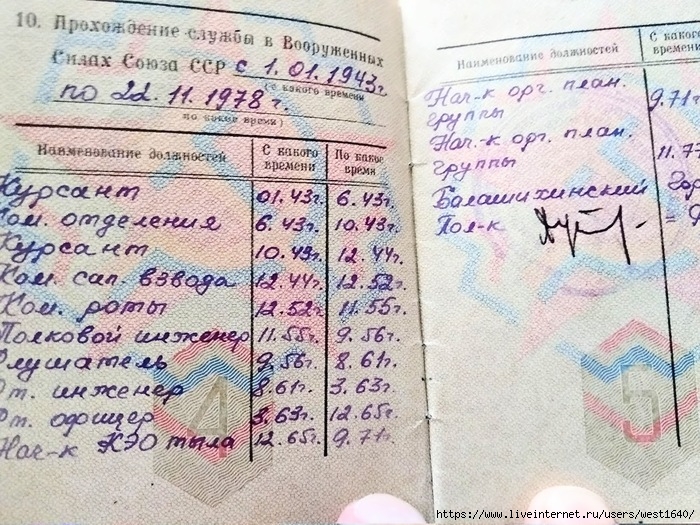 10. Прохождение службы в Вооруженных
Силах Союза ССР с 1.01.1943г
(с какого времени
по 22.11.1978г.
по какое время)
Наименование должностей С какого времени По какое время
Курсант 01.43г. 6.43г.
Ком. отделения 6.43г. 10.43г.
Курсант 10.43г. 12.44г.
Ком. сап. взвода 12.44г. 12.52г.
Ком. роты 12.52г. 11.55г.
Полковой инженер 11.55г. 9.56г.
Слушатель 9.56г. 8.61г.
Ст. инженер 8.61г. 3.63г.
Ст. офицер 3.63г. 12.65г.
Нач-к КЭО тыла 12.65г. 9.71г.
4
Наименование должностей С какого времени
Нач-к орг. план. группы 9.71г
Нач-к орг. план. группы 11.7
Балашихинский Гор
Пол-к
5
https://www.liveinternet.ru/users/west1640/